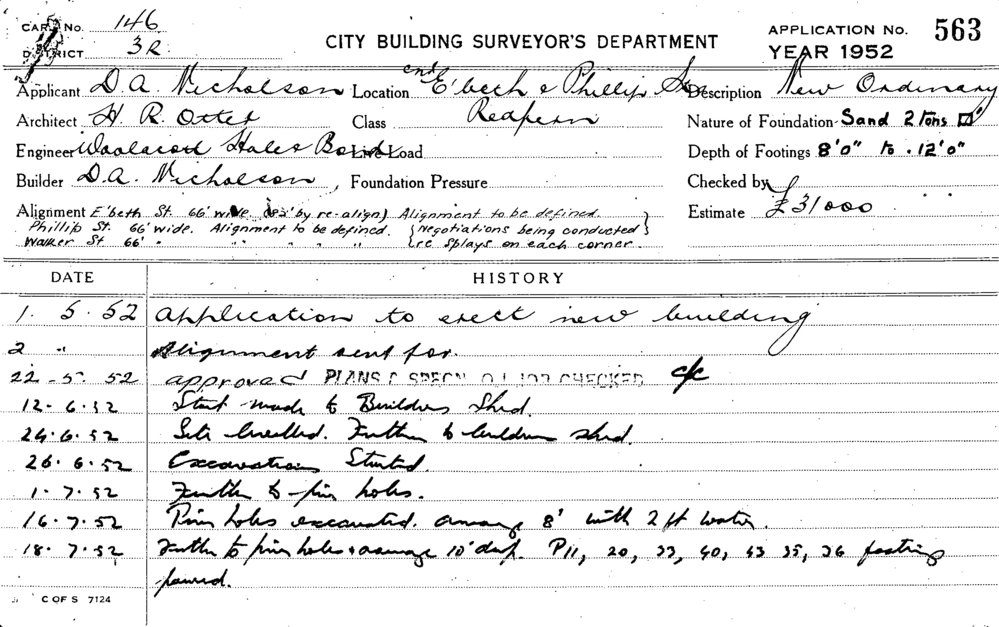 CARD No. 146
DISTRICT 3R
CITY BUILDING SURVEYOR'S DEPARTMENT
APPLICATION No. 563
YEAR 1952
Applicant D. A. Nicholson
Location cnr E'beth & Phillip Sts
Description New Ordinary
Architect H. R. Otter
Class Redfern
Nature of Foundation Sand 2 tons
Engineer Woolacott Hale & Bond
Live Load
Depth of Footings 8'0" to 12'0"
Builder D. A. Nicholson,
Foundation Pressure
Checked by
Alignment E'beth St. 66' wide by re-align) Alignment to be defined.
Estimate £31000
Phillip St. 66' wide. Alignment to be defined. {Negotiations being conducted}
Walker St 66' " " " " " {re splays on each corner.
DATE HISTORY
1. 5. 52 Application to erect new building
2 " Alignment sent for.
22. 5. 52 approved PLANS & SPECN. JOB CHECKED
12. 6. 52 Start made to Builders Shed.
24. 6. 52 Site levelled. Further to builders shed.
26. 6. 52 Excavations Started.
1. 7. 52 Further to pier holes.
16. 7. 52 Pier holes excavated. average 8' with 2 ft water.
18. 7. 52 Further to pier holes average 10' deep. P11, 20, 33, 40, 43 35, 36 footing
poured.
C OF S 7124